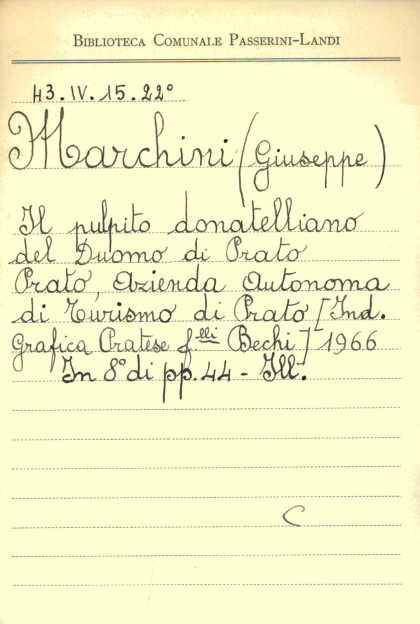 BIBLIOTECA COMUNALE PASSERINI-LANDI
43.IV.15.22°
Marchini (Giuseppe)
Il pulpito donatelliano
del Duomo di Prato
Prato, Azienda Autonoma
di Turismo di Prato [Ind.
Grafica Pratese f.lli Bechi] 1966
In 8° di pp. 44 - Ill.
C